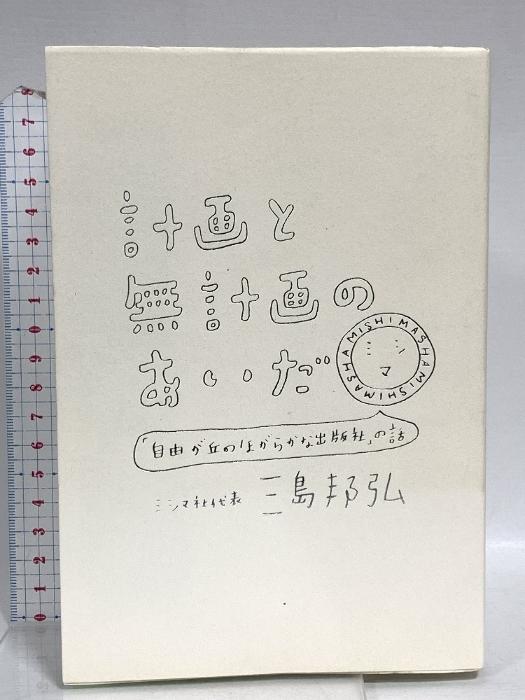 計画と
無計画の
あいだ
MISHIMASHA MISHIMASHA
ミシマ
「自由が丘のほがらかな出版社」の話
ミシマ社代表 三島邦弘
8
7
6
5
4
3
2
1
0
9
8
7
6
5
4
3
2
1
0